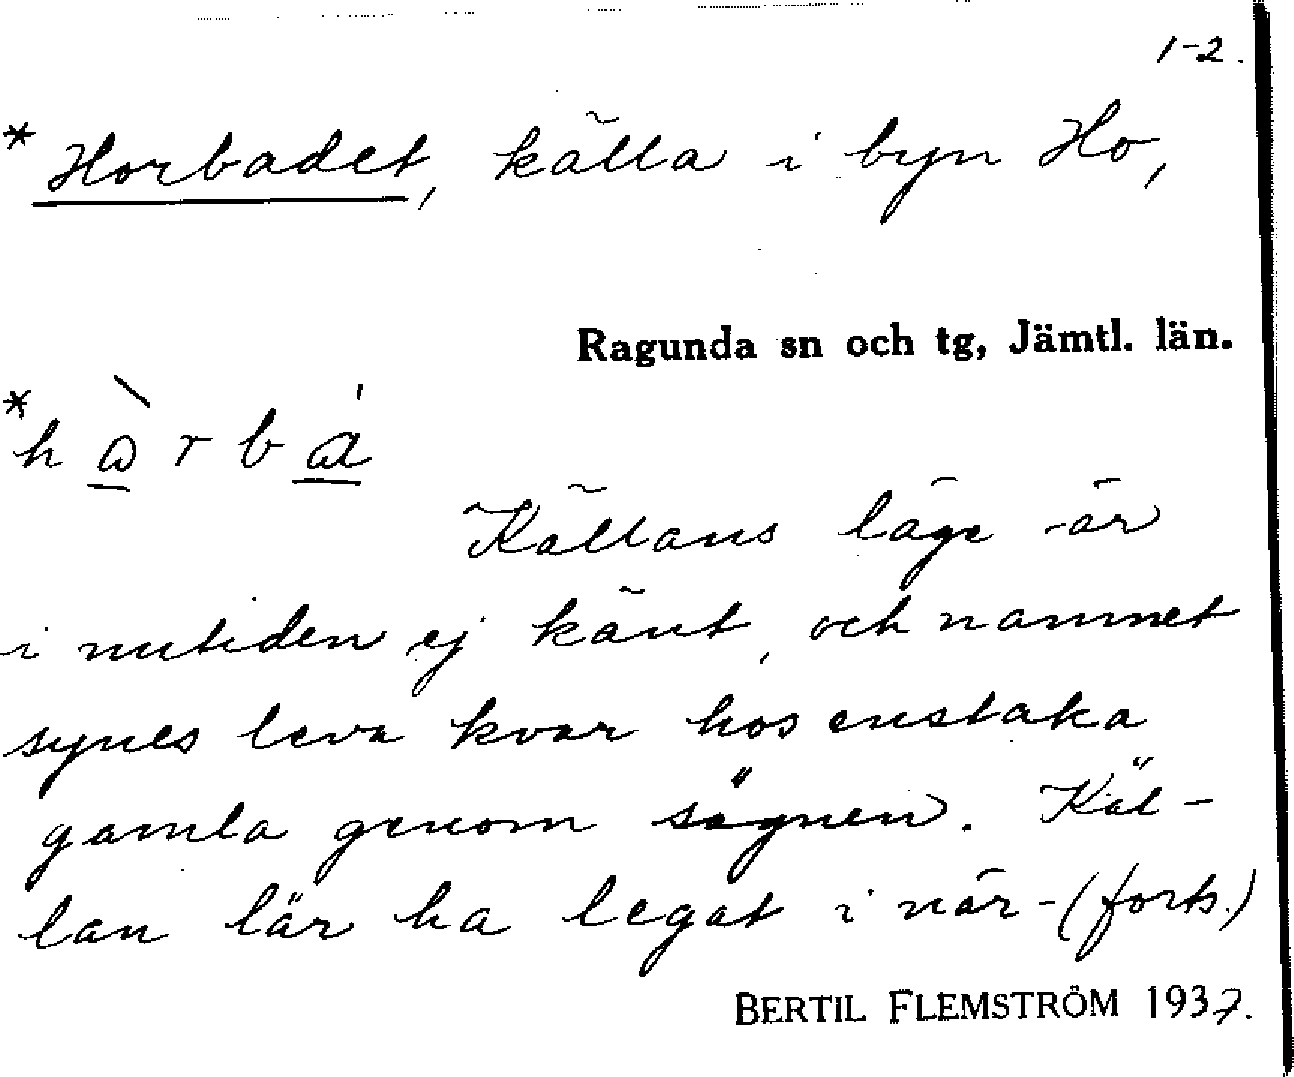 1-2.
*Horbadet, källa i byn Ho,
Ragunda sn och tg, Jämtl. län.
Källans läge är
i nutiden ej känt, och namnet
synes leva kvar hos enstaka
gamla genom sägnen. Käl-
lan lär ha legat i när- (forts.)
BERTIL FLEMSTRÖM 1937.